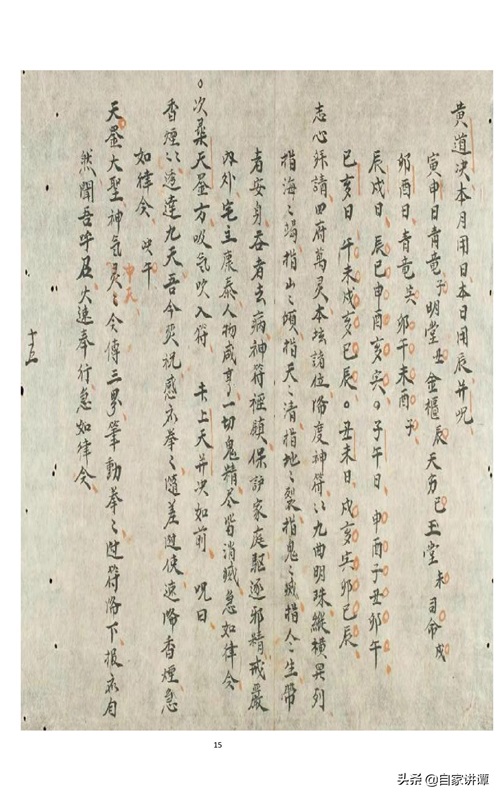 黄道决本月用日本日用辰并呪
寅申日青竜子明堂丑金櫃辰天方巳玉堂未司命戌
卯酉日青竜寅卯午未酉子
辰戌日辰巳申酉亥寅。子午日申酉子丑卯午
巳亥日午未戌亥巳辰。丑未日戌亥寅卯巳辰
志心殊請四府萬灵本坛諸位降度神符〻九曲明珠縱横具列
指海〻竭指山〻頭指天〻清指地〻裂指鬼〻滅指人〻生帶
者安身吞者去病神符鎮保護家庭驅逐邪精戒嚴
內外宅主康泰人物咸亨一切鬼精尽皆消滅急如律令
。次天罡方吸気吹入符上天并决如前呪曰
香煙〻透達九天吾今祝感〻隨差使速降香煙急
如律令
申天
天罡大聖神気灵〻今傳三界筆動〻符降下报
然聞吾呼召火速奉行急如律令
十五
15
头条@自家讲谭